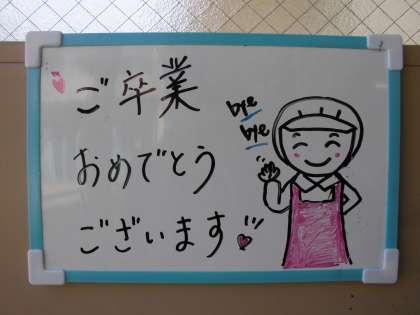 ご卒業
おめでとう
ございます
bye
bye